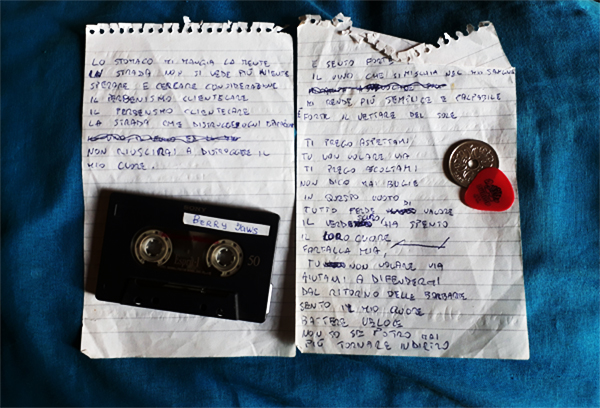 LO STOMACO MI MANGIA LA MENTE
IN STRADA NON SI VEDE PIÙ NIENTE
SPERARE E CERCARE CONSIDERAZIONE
IL PERBENISMO CLIENTELARE
IL PERBENISMO CLIENTELARE
LA STRADA CHE DISTRUGGE OGNI
NON RIUSCIRAI A DISTOGGERE IL
MIO CUORE.
SONY
BERRY JAWS
50
E SENTO FORTE
IL VINO CHE SI MISCHIA NEL MIO SANGUE
MI RENDE PIÙ SEMPLICE E
FORSE IL NETTARE DEL SOLE
TI PREGO ASPETTAMI
TU NON VOLARE VIA
TI PREGO ASCOLTAMI
NON DICO MAI BUGIE
IN QUESTO VUOTO
TUTTO PERDE DI VALORE
IL VERDE HA SPENTO
IL LORO CUORE
FARFALLA MIA,
TU NON VOLARE VIA
AIUTAMI A DIFENDERMI
DAL RITORNO DELLE BARBARIE
SENTO IL MIO CUORE
BATTERE VELOCE
NON SO SE POTRÒ MAI
PIÙ TORNARE INDIETRO